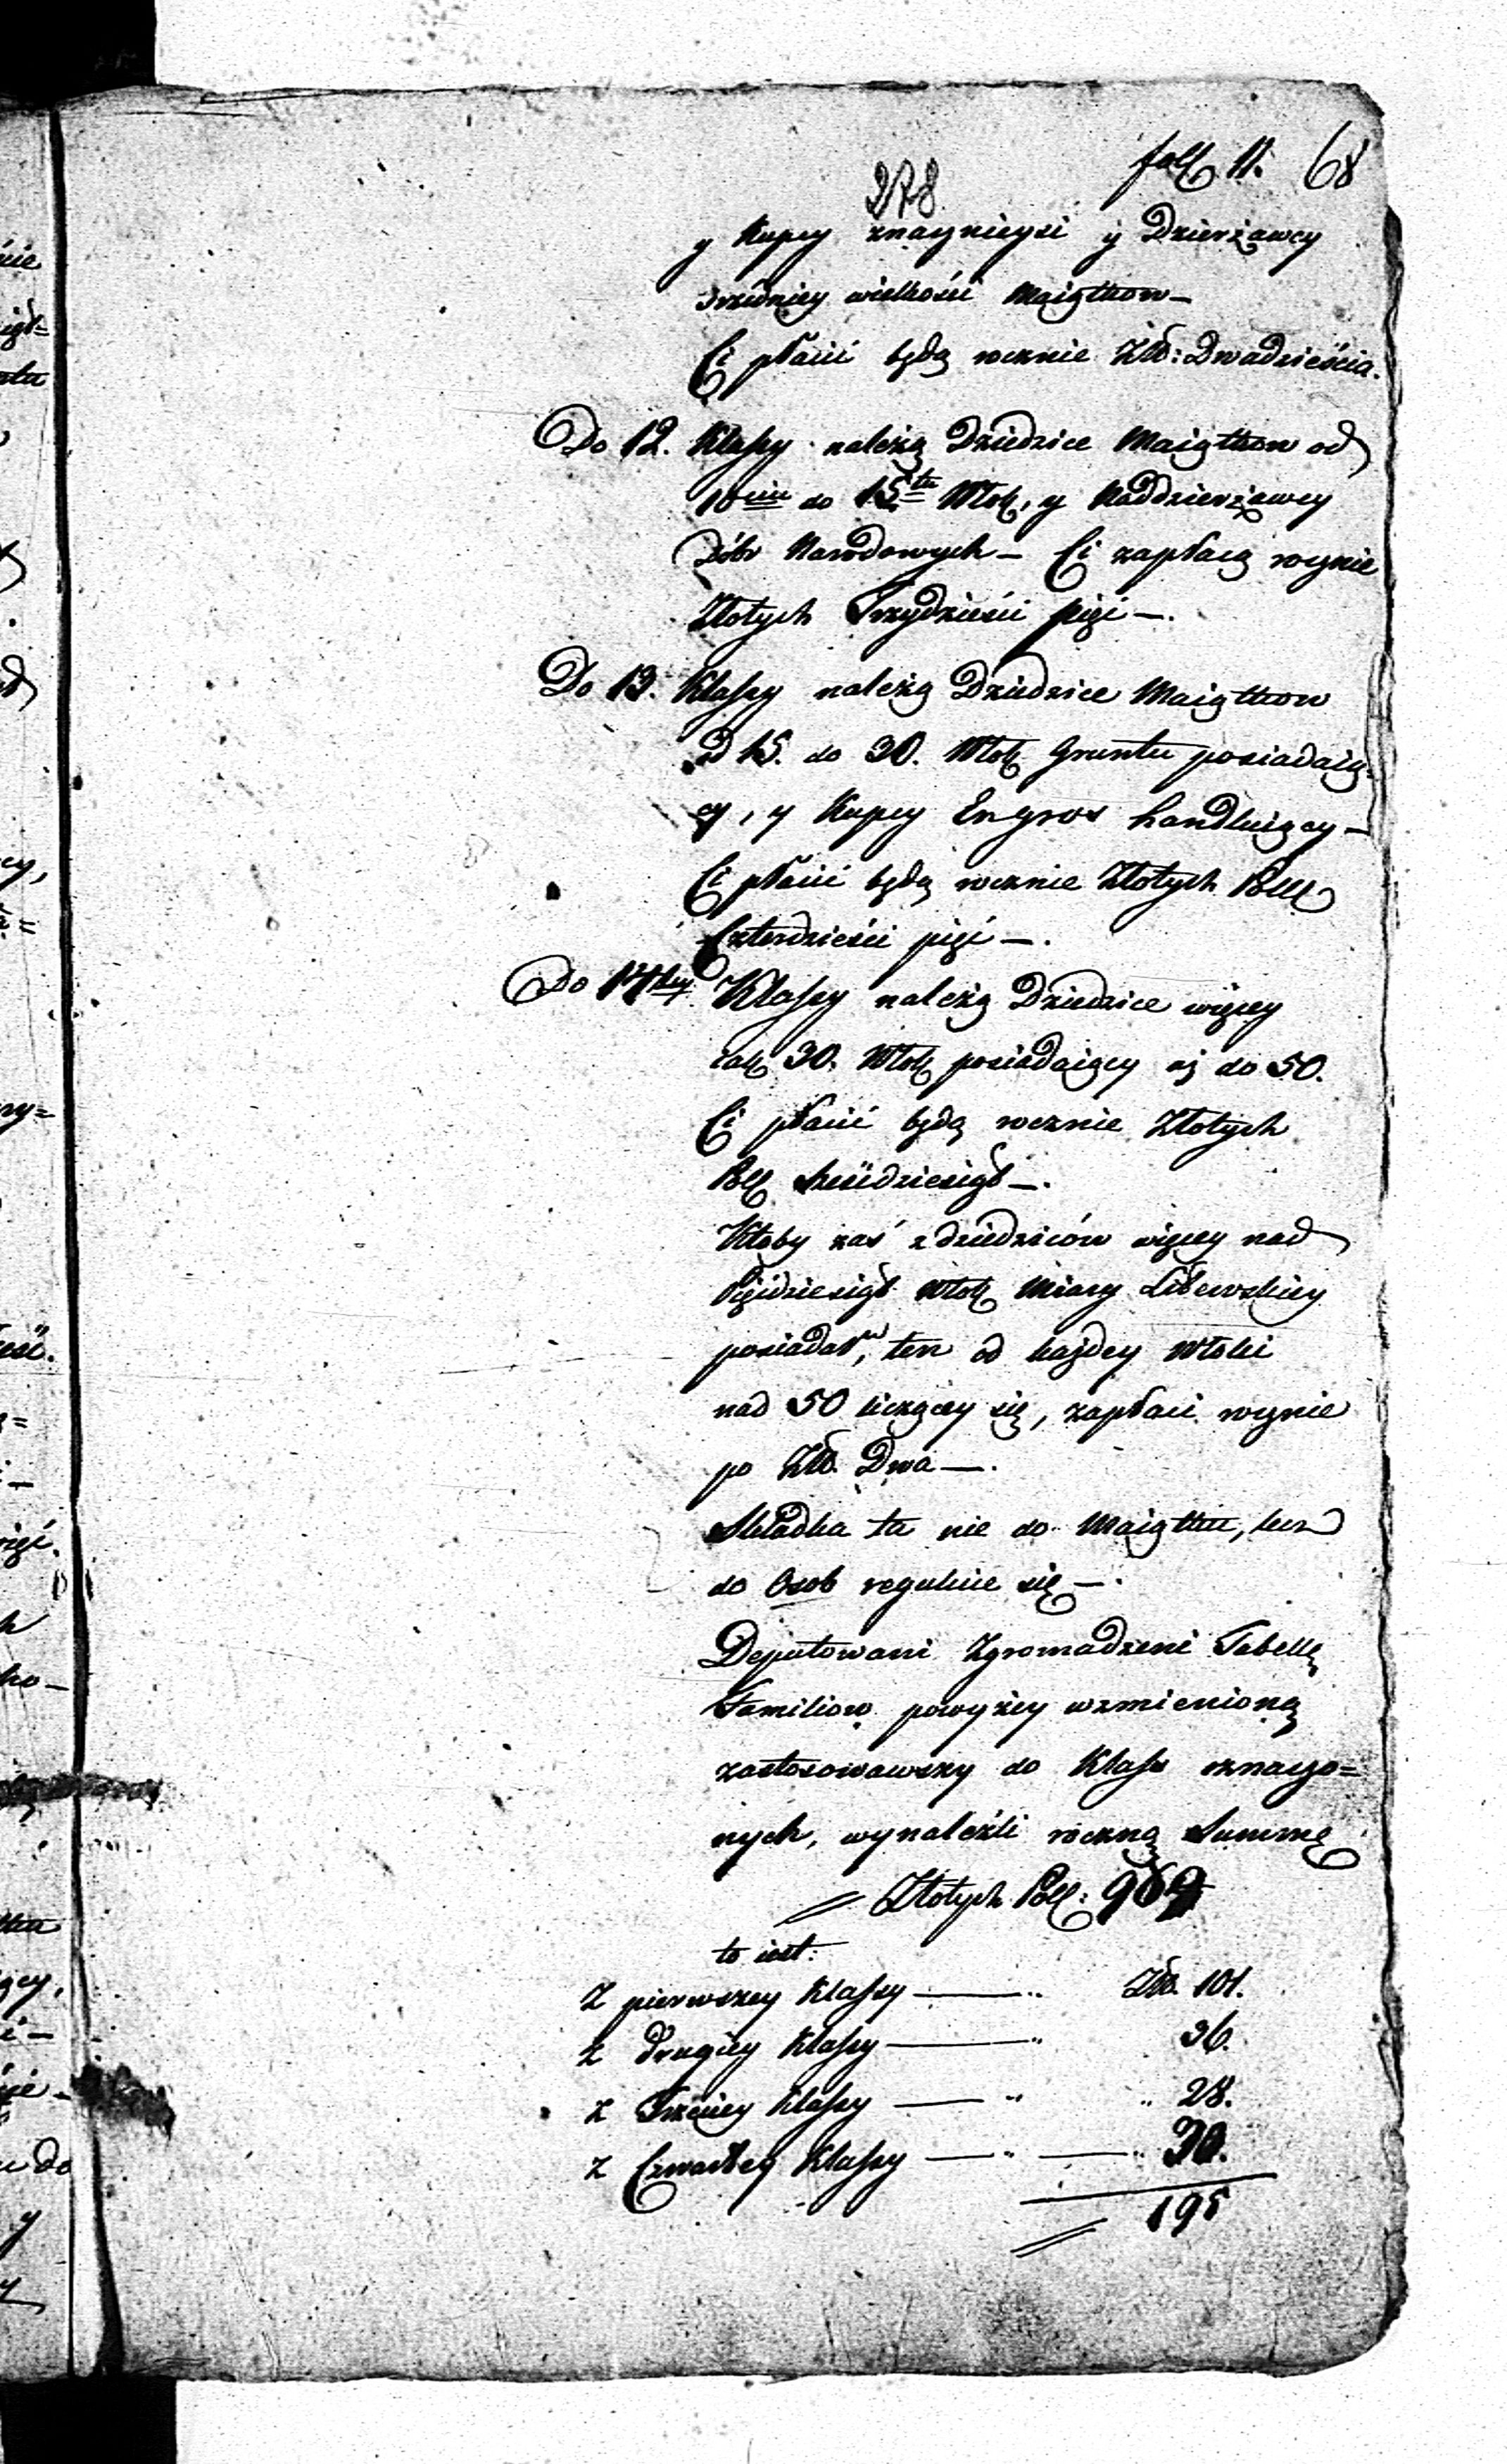 foll. 11. 68
278
y Kupcy znacznieysi y Dzierżawcy
srzedniey wielkości Maiątkow —
Ci płacić będą rocznie Złł: Dwadzieścia.
Do 12. Klassy należą Dziedzice Maiątkow od
10ciu do 15tu Włok, y Naddzierżawcy
Dóbr Narodowych — Ci zapłacą rocznie
Złotych Trzydzieści pięć —.
Do 13. Klassy należą Dziedzice Maiątkow
od 15. do 30. Włok Gruntu posiadaią=
cy, y Kupcy Engros handluiący —
Ci płacić będą rocznie Złotych Poll
Czterdzieści pięć —.
Do 14tey Klassy należą Dziedzice więcey
iak 30. Włok posiadaiący aż do 50.
Ci płacić będą rocznie Złotych
Poll Sześćdziesiąt —.
Ktoby zaś z dziedziców więcey nad
Pięćdziesiąt Włok Miary Litewskiey
posiadał, ten od każdey Włoki
nad 50 liczącey się, zapłaci rocznie
po Złł. Dwa —.
Składka ta nie do Maiątku, lecz
do Osob reguluie się —.
Deputowani Zgromadzeni Tabellę
Familiow powyżey wzmienioną
zastosowawszy do Klass oznaczo=
nych, wynaleźli roczną Summę
Złotych Poll: 969
to iest:
Z pierwszey Klassy — Złł. 101.
z drugiey Klassy — 36.
z Trzeciey Klassy — 28.
z Czwartey Klassy — 30.
195